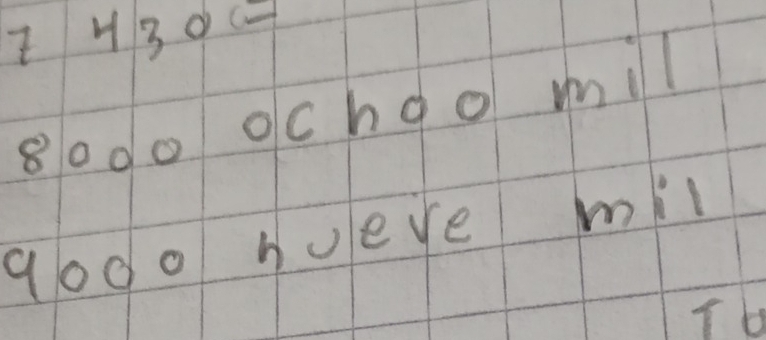 7 430
8000 ochoo mil
9000 nueve mil